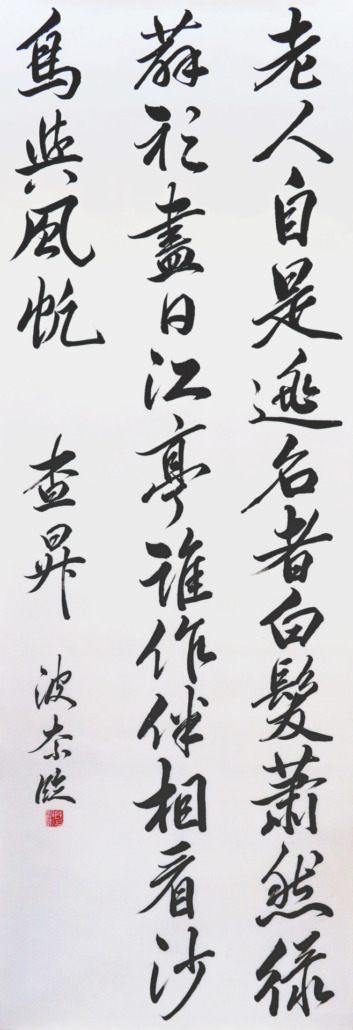 老人自是逃名者白髮蕭然綠
蘚衫盡日江亭誰作伴相看沙
鳥與風帆
查昇
波奈臨